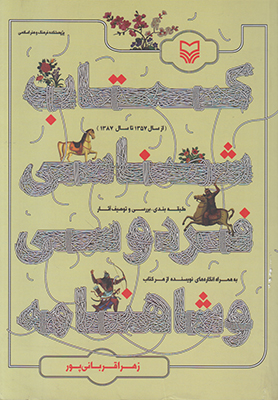 پژوهشکده فرهنگ و هنر اسلامی
کتاب
(از سال ۱۳۵۷ تا سال ۱۳۸۷)
شناسی
طبقه بندی، بررسی و توصیف آثار
فردوسی
به همراه انگاره‌های نویسنده از هر کتاب
و شاهنامه
زهرا قربانی‌پور